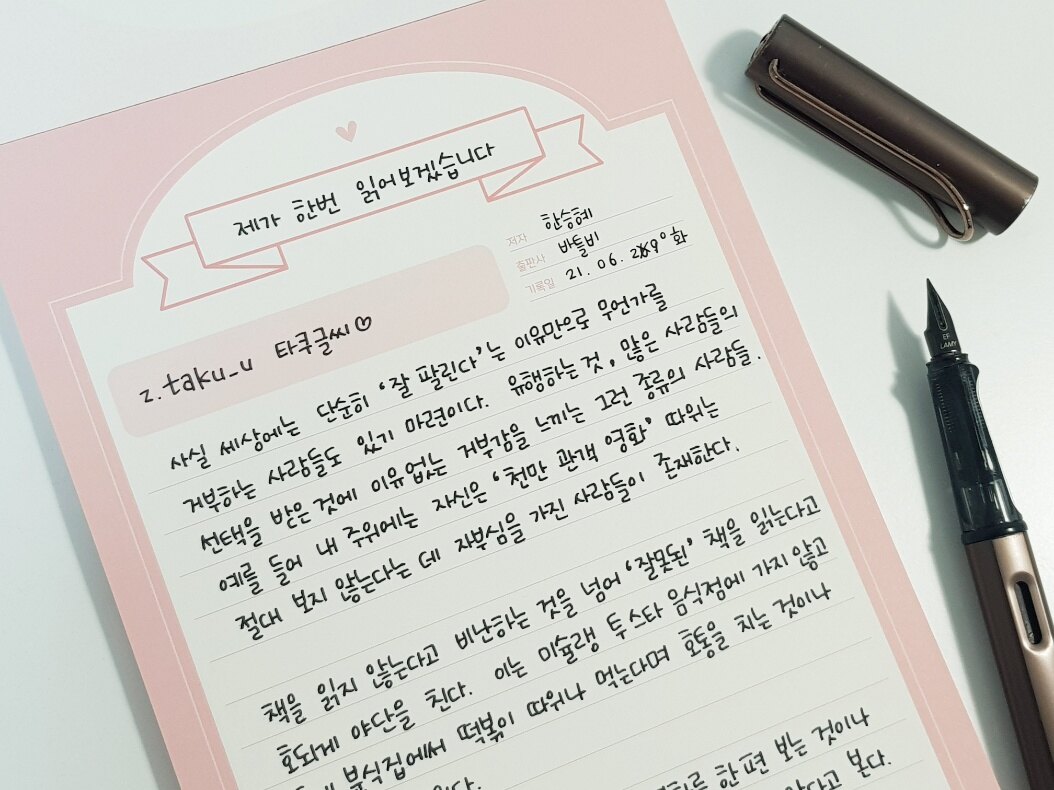 제가 한번 읽어보겠습니다
저자 한승혜
출판사 바틀비
기록일 21. 06. 29 화
z.taku_u 타쿠글씨
사실 세상에는 단순히 ‘잘 팔린다’는 이유만으로 무언가를
거부하는 사람들도 있기 마련이다. 유행하는 것, 많은 사람들의
선택을 받은 것에 이유없는 거부감을 느끼는 그런 종류의 사람들.
예를 들어 내 주위에는 자신은 ‘천만 관객 영화’ 따위는
절대 보지 않는다는 데 자부심을 가진 사람들이 존재한다.
책을 읽지 않는다고 비난하는 것을 넘어 ‘잘못된’ 책을 읽는다고
호되게 야단을 친다. 이는 미슐랭 투스타 음식점에 가지 않고
분식집에써 떡볶이 따위나 먹는다며 호통을 치는 것이나
한 편 보는 것이나
않다고 본다.
EF
LAMY